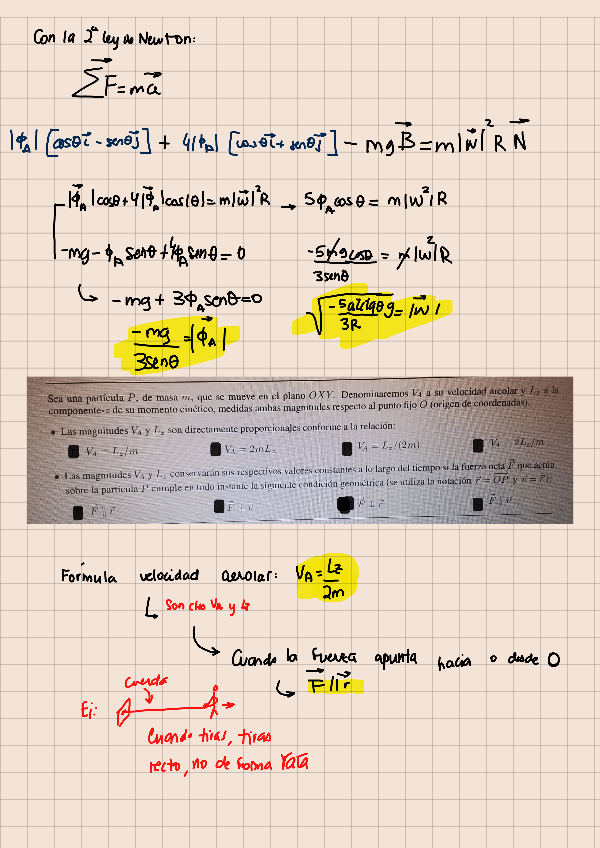 Con la 2ª ley de Newton:
ΣF⃗ = ma⃗
|ϕ_A| [cosθi⃗ - senθj⃗] + 4|ϕ_A| [cosθi⃗ + senθj⃗] - mgB⃗ = m|w⃗|² R N⃗
|ϕ⃗_A|cosθ + 4|ϕ⃗_A|cos(θ) = m|w⃗|²R → 5ϕ_A cosθ = m|w²|R
-mg - ϕ_A senθ + 4ϕ_A senθ = 0
-5mg cosθ / 3senθ = m|w|²R
↳ -mg + 3ϕ_A senθ = 0
-mg / 3senθ = |ϕ⃗_A|
Sea una partícula P, de masa m, que se mueve en el plano OXY. Denominaremos V_A a su velocidad areolar y L_z a la
componente-z de su momento cinético, medidas ambas magnitudes respecto al punto fijo O (origen de coordenadas).
• Las magnitudes V_A y L_z son directamente proporcionales conforme a la relación:
V_A = L_z/m V_A = 2mL_z V_A = L_z/(2m) V_A = 2L_z/m
• Las magnitudes V_A y L_z conservarán sus respectivos valores constantes a lo largo del tiempo si la fuerza neta F⃗ que actúa
sobre la partícula P cumple en todo instante la siguiente condición geométrica (se utiliza la notación r⃗ = OP⃗ y v⃗ = ṙ⃗):
F⃗ ∥ r⃗ F⃗ ⊥ v⃗ F⃗ ⊥ r⃗ F⃗ ∥ v⃗
Fórmula velocidad aerolar: V_A = Lz/2m
↳ Son ctes VA y Lz
↳ Cuando la fuerza apunta hacia o desde O
↳ F⃗ // r⃗
cuerda
Ej:
Cuando tiras, tiras
recto, no de forma rara